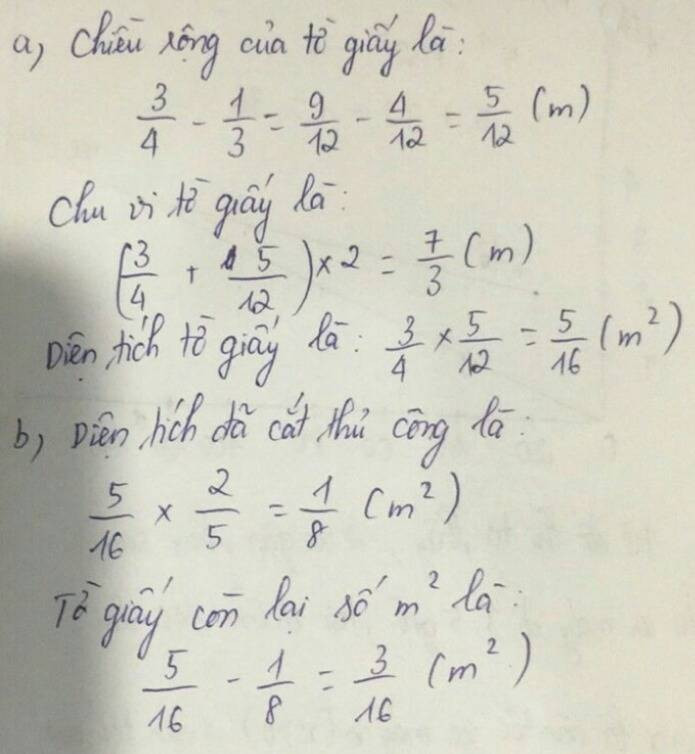 a, Chiều rộng của tờ giấy là:
3/4 - 1/3 = 9/12 - 4/12 = 5/12 (m)
Chu vi tờ giấy là:
(3/4 + 5/12) × 2 = 7/3 (m)
Diện tích tờ giấy là: 3/4 × 5/12 = 5/16 (m²)
b, Diện tích đã cắt thủ công là:
5/16 × 2/5 = 1/8 (m²)
Tờ giấy còn lại số m² là:
5/16 - 1/8 = 3/16 (m²)